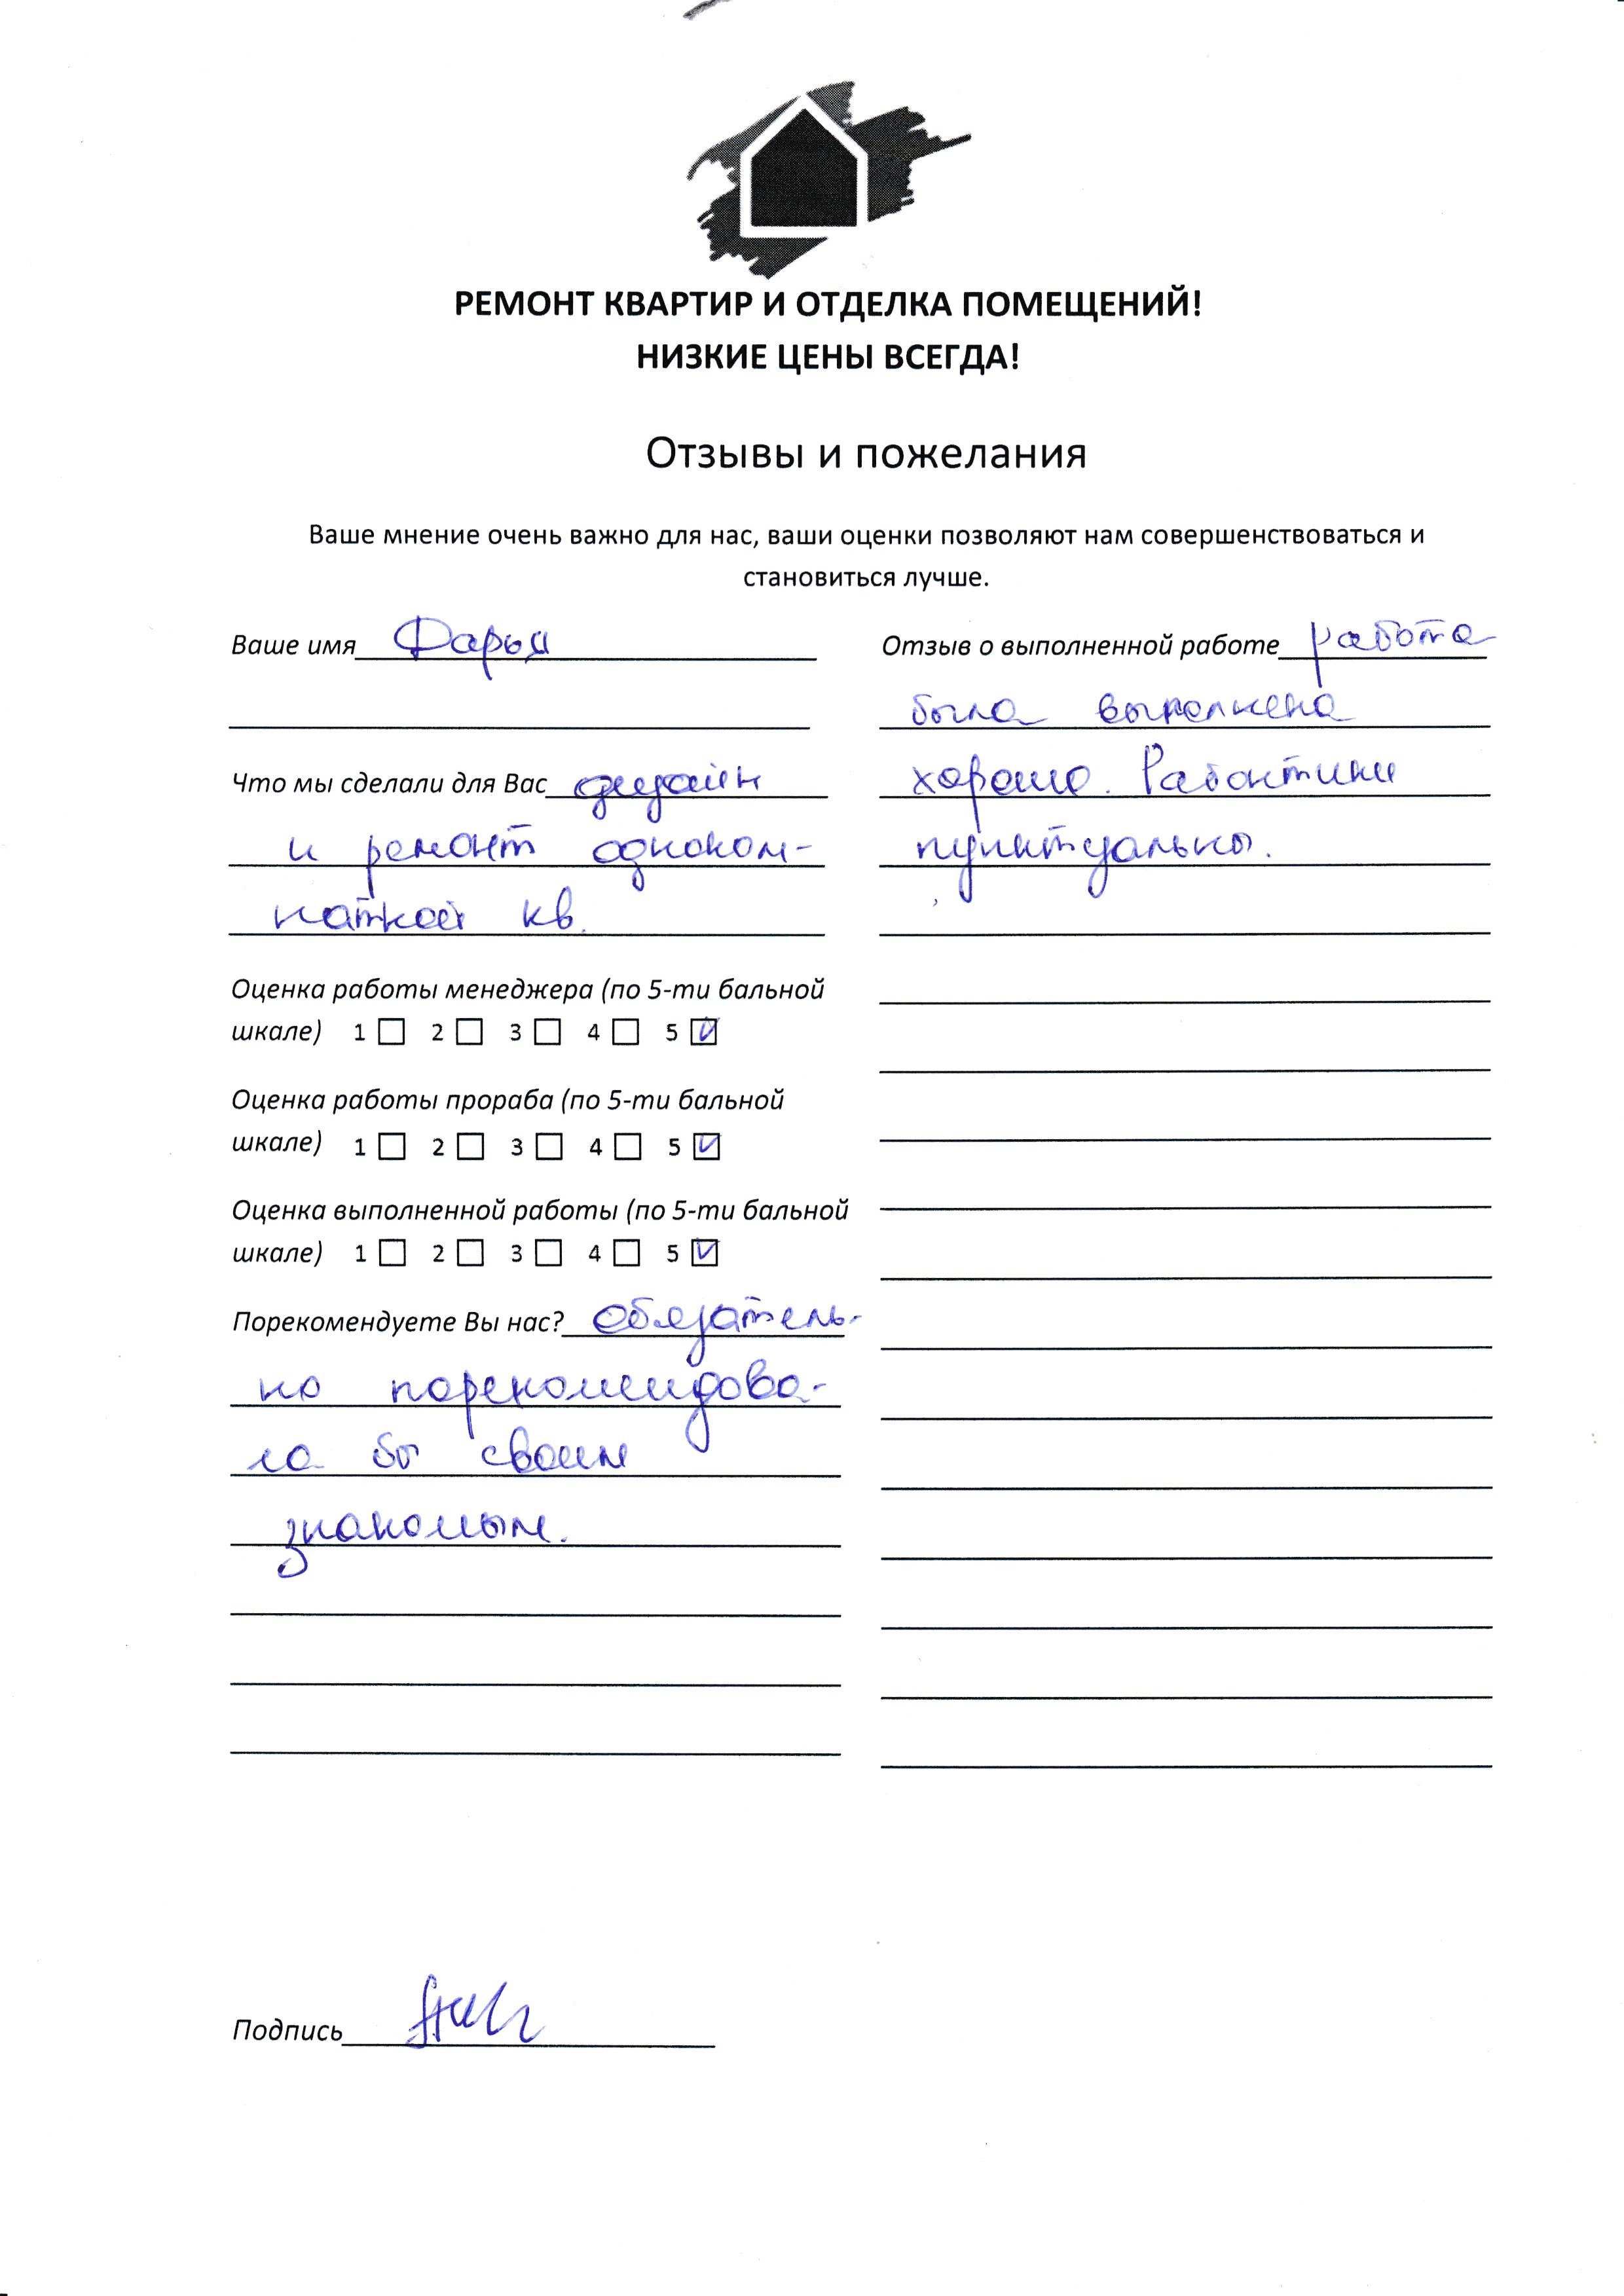 РЕМОНТ КВАРТИР И ОТДЕЛКА ПОМЕЩЕНИЙ!
НИЗКИЕ ЦЕНЫ ВСЕГДА!
Отзывы и пожелания
Ваше мнение очень важно для нас, ваши оценки позволяют нам совершенствоваться и
становиться лучше.
Ваше имя Дарья
Что мы сделали для Вас дизайн
и ремонт одноком-
натной кв.
Оценка работы менеджера (по 5-ти бальной
шкале) 1 ☐ 2 ☐ 3 ☐ 4 ☐ 5 ☑
Оценка работы прораба (по 5-ти бальной
шкале) 1 ☐ 2 ☐ 3 ☐ 4 ☐ 5 ☑
Оценка выполненной работы (по 5-ти бальной
шкале) 1 ☐ 2 ☐ 3 ☐ 4 ☐ 5 ☑
Порекомендуете Вы нас? обязатель-
но порекомендова-
ла бы своим
знакомым.
Отзыв о выполненной работе работа
была выполнена
хорошо. Работники
пунктуальны.
Подпись